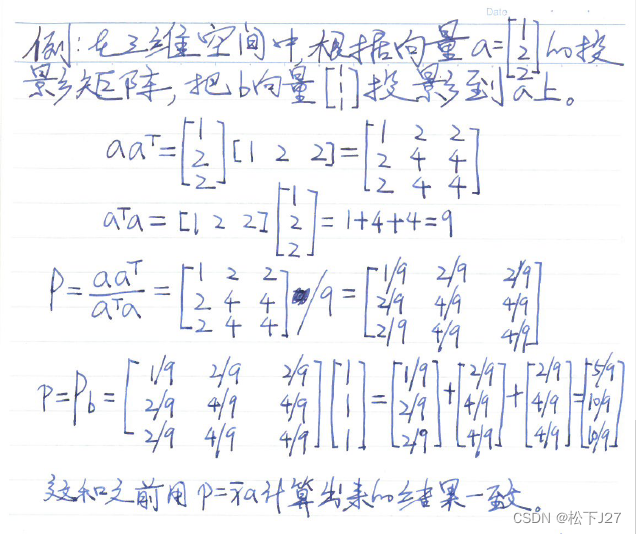 Date
例:在三维空间中根据向量a=[1 2 2]的投
影矩阵,把b向量[1 1 1]投影到a上。
aaᵀ=[1 2 2][1 2 2]=[1 2 2 2 4 4 2 4 4]
aᵀa=[1 2 2][1 2 2]=1+4+4=9
P=aaᵀ/aᵀa=[1 2 2 2 4 4 2 4 4]/9=[1/9 2/9 2/9 2/9 4/9 4/9 2/9 4/9 4/9]
P=Pb=[1/9 2/9 2/9 2/9 4/9 4/9 2/9 4/9 4/9][1 1 1]=[1/9 2/9 2/9]+[2/9 4/9 4/9]+[2/9 4/9 4/9]=[5/9 10/9 10/9]
这和之前用P=x̄a计算出来的结果一致。
CSDN @松下J27